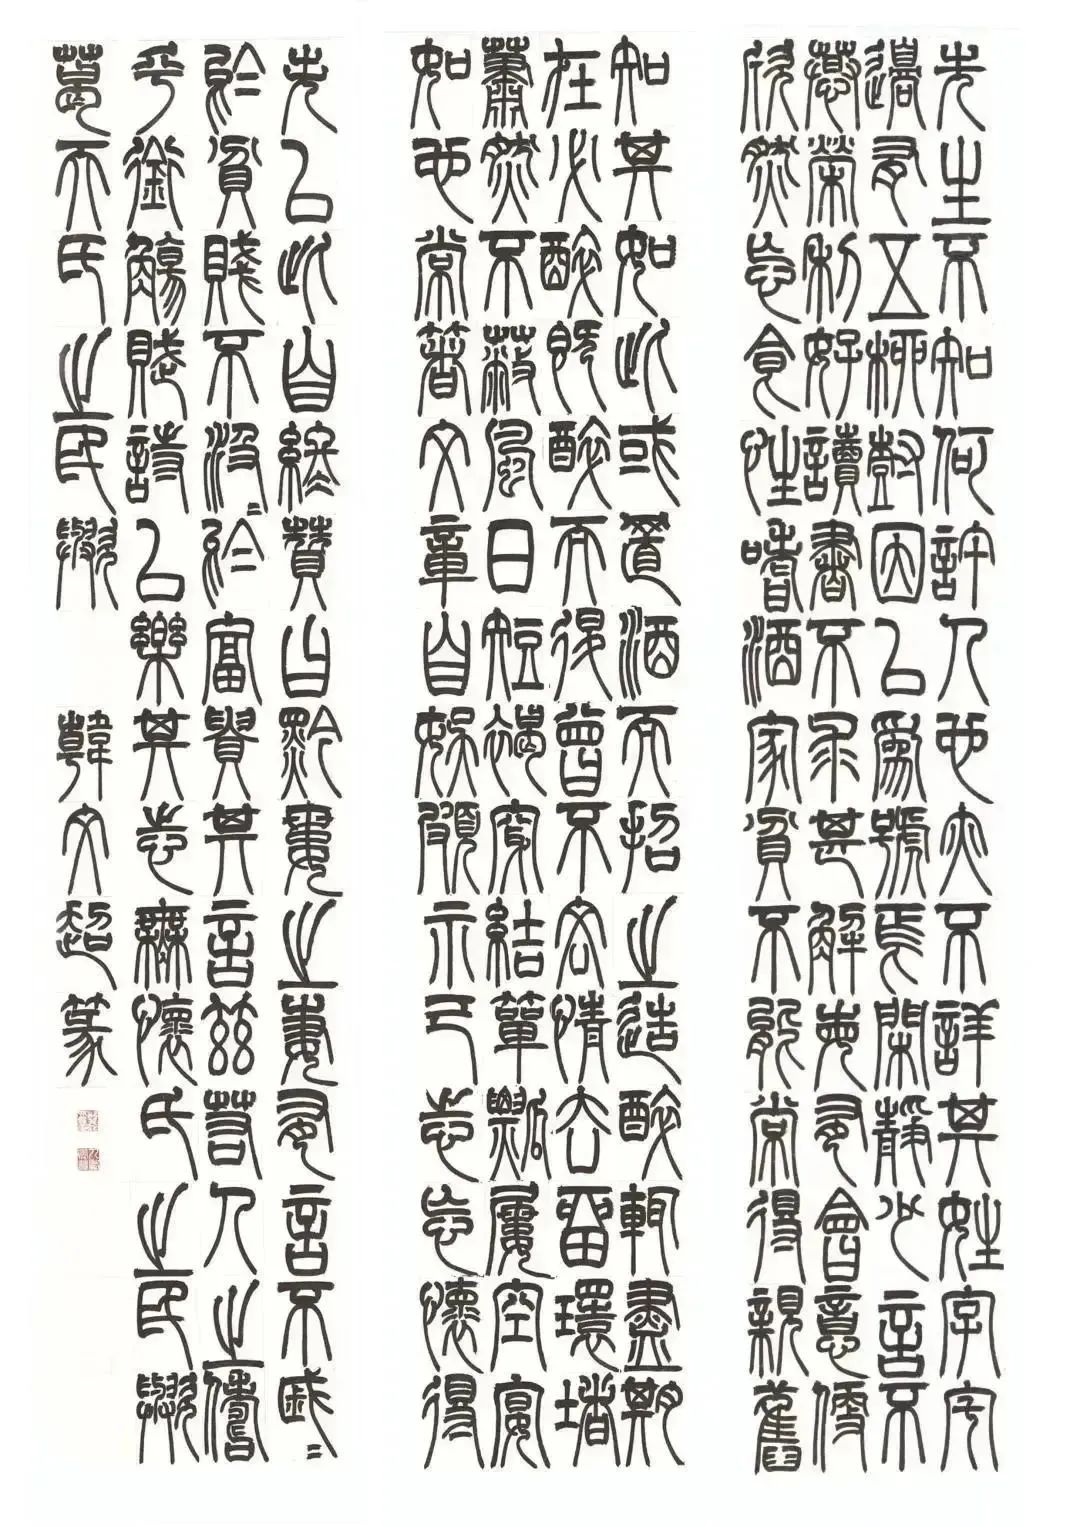 先生不知何許人也亦不詳其姓字宅
邊有五柳樹因以為號焉閑靜少言不
慕榮利好讀書不求甚解每有會意便
欣然忘食性嗜酒家貧不能常得親舊
知其如此或置酒而招之造飲輒盡期
在必醉既醉而退曾不吝情去留環堵
蕭然不蔽風日短褐穿結簞瓢屢空晏
如也常著文章自娛頗示己志忘懷得
失以此自終贊曰黔婁之妻有言不戚〻
於貧賤不汲〻於富貴其言茲若人之儔
乎銜觴賦詩以樂其志無懷氏之民歟
葛天氏之民歟 韓文超篆